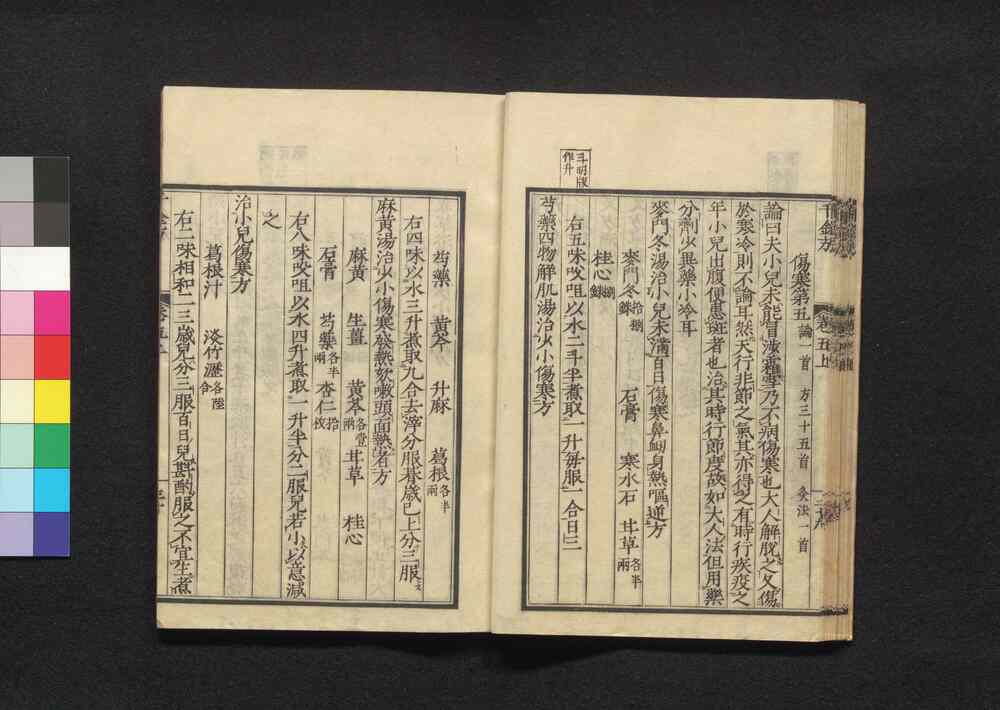 千金方 卷五上
傷寒第五論一首 方三十五首 灸法一首
論曰夫小兒未能冒涉霜雪乃不病傷寒也大人解脫之久傷
於寒冷則不論耳然天行非節之氣其亦得之有時行疾疫之
年小兒出腹便患斑者也治其時行節度故如大人法但用藥
分劑少異藥小冷耳
麥門冬湯治小兒未滿百日傷寒鼻衄身熱嘔逆方
麥門冬拾捌銖 石膏 寒水石 甘草各半兩
桂心捌銖
右五味㕮咀以水二斗半煮取一升每服一合日三
斗明版作升
芍藥四物解肌湯治少小傷寒方
芍藥 黃芩 升麻 葛根各半兩
右四味以水三升煮取九合去滓分服朞歲已上分三服
麻黃湯治少小傷寒發熱欬嗽頭面熱者方
麻黃 生薑 黃芩各壹兩 甘草 桂心
石膏 芍藥各半兩 杏仁拾枚
右八味㕮咀以水四升煮取一升半分二服兒若小以意減
之
治小兒傷寒方
葛根汁 淡竹瀝各陸合
右二味相和二三歲兒分三服百日兒斟酌服之不宜生煮